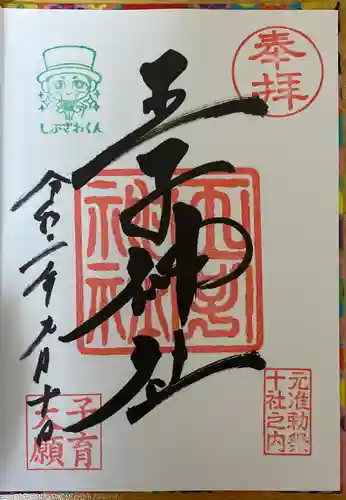 奉拝
元准勅祭
十社之内
王子神社
王子神社
令和二年九月十日
しぶざわくん
子育
大願